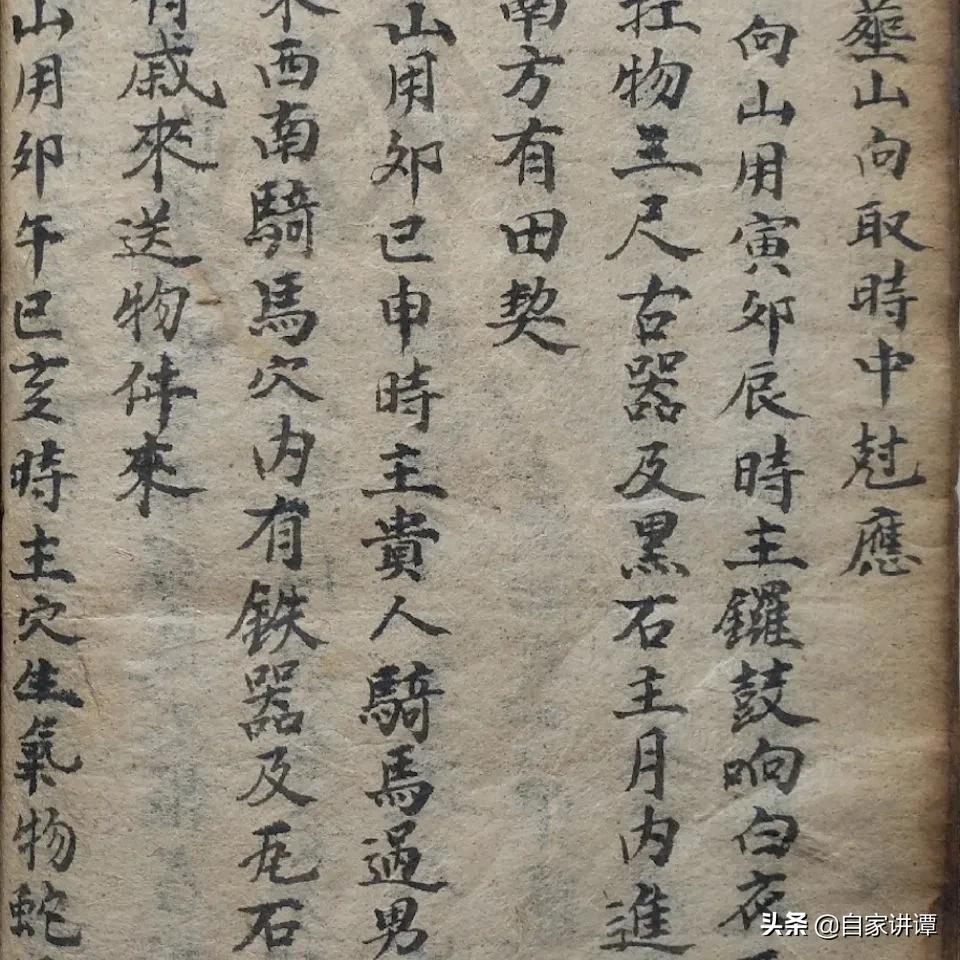 山向取時中尅應
向山用寅卯辰時主鑼鼓响白衣
物三尺古器及黑石主月内進
南方有田契
山用卯巳申時主貴人騎馬過男
西南騎馬穴内有鉄器及瓦石
有戚來送物件來
山用卯午巳亥時主穴生氣物蛇
头条 @自家讲谭